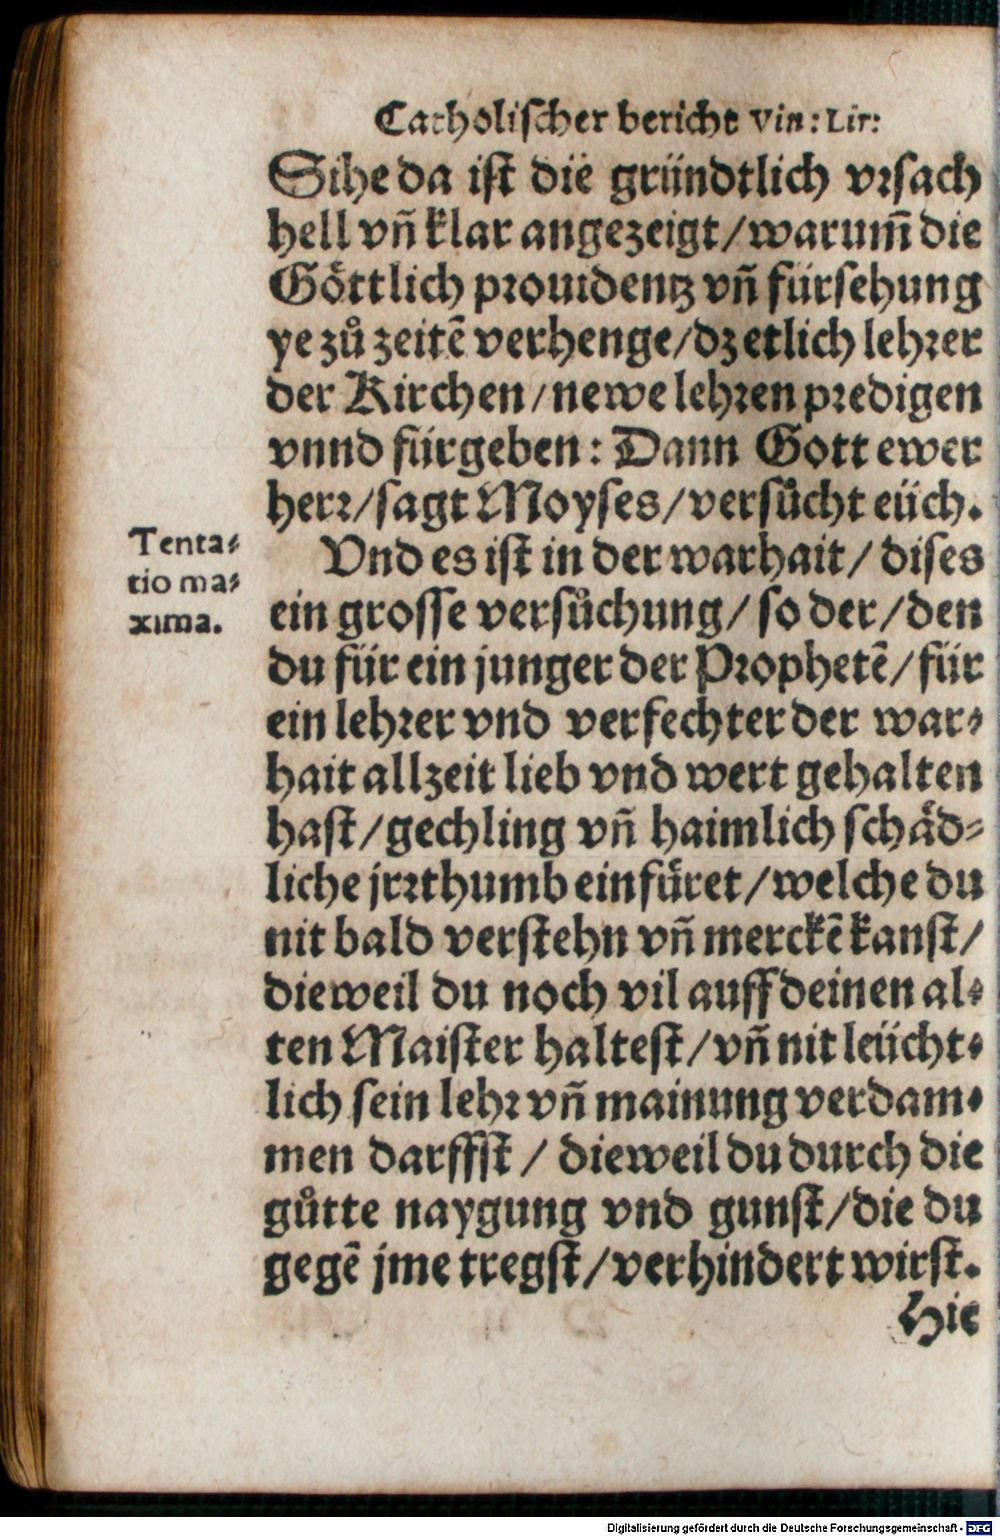 Catholischer bericht Vin: Lir:
Sihe da ist die gründtlich vrsach
hell vñ klar angezeigt/warum̃ die
Göttlich prouidentz vñ fürsehung
ye zů zeitẽ verhenge/dz etlich lehrer
der Kirchen/newe lehren predigen
vnnd fürgeben: Dann Gott ewer
herr/sagt Moyses/versůcht eüch.
Tenta⸗
tio ma⸗
xima.
Vnd es ist in der warhait/ dises
ein grosse versůchung/ so der/den
du für ein junger der Prophetẽ/für
ein lehrer vnd verfechter der war⸗
hait allzeit lieb vnd wert gehalten
hast/gechling vñ haimlich schäd⸗
liche jrrthumb einfüret/welche du
nit bald verstehn vñ merckẽ kanst/
dieweil du noch vil auff deinen al⸗
ten Maister haltest/vñ nit leücht⸗
lich sein lehr vñ mainung verdam⸗
men darffst/ dieweil du durch die
gůtte naygung vnd gunst/die du
gegẽ jme tregst/verhindert wirst.
Hie
Digitalisierung gefördert durch die Deutsche Forschungsgemeinschaft - DFG